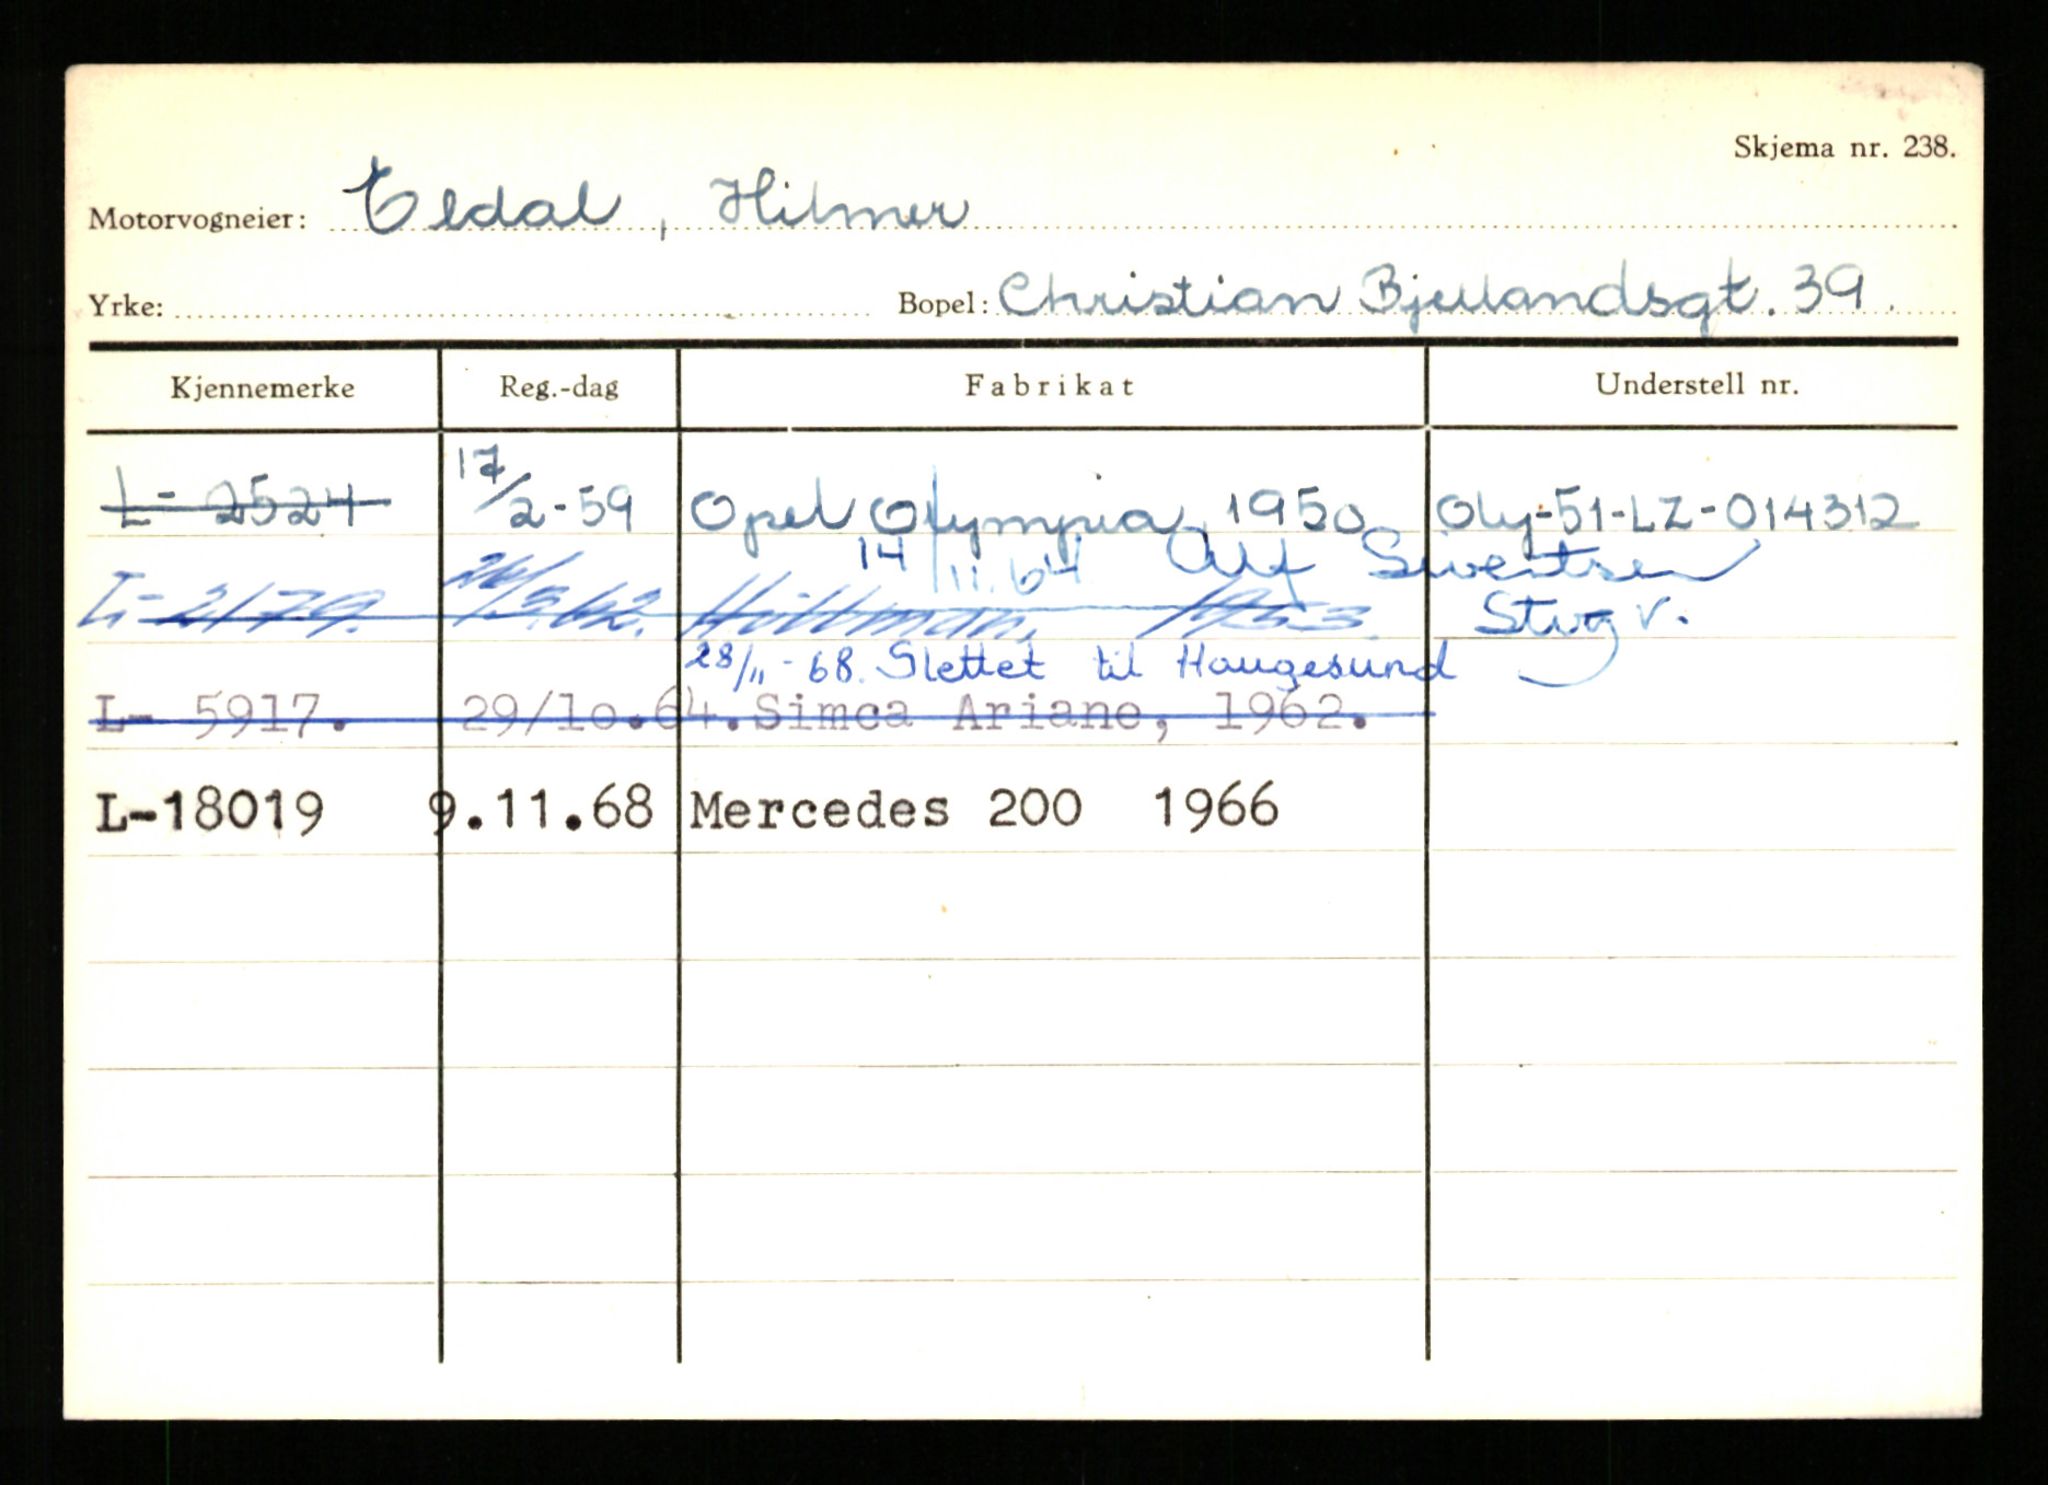 Skjema nr. 238.
Motorvogneier: Eldal, Hilmer
Yrke: Bopel: Christian Bjellandsgt. 39.
Kjennemerke Reg.-dag Fabrikat Understell nr.
L- 2524 17/2-59 Opel Olympia 1950 Oly-51-LZ-014312
14/11.64 Alf Sivertsen
L- 2179. 26/3.62. Hillman, 1953. Stvg v.
28/11-68. Slettet til Haugesund
L- 5917. 29/10.64. Simca Ariane, 1962.
L-18019 9.11.68 Mercedes 200 1966